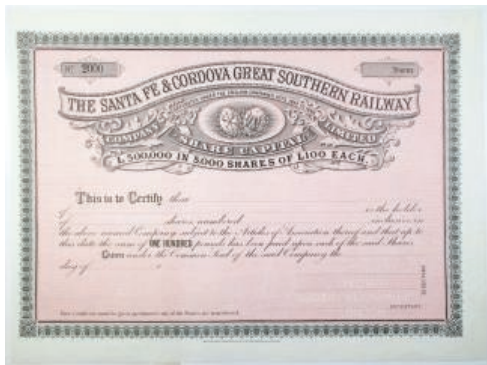 No 2000
Shares
THE SANTA FE & CORDOVA GREAT SOUTHERN RAILWAY
COMPANY LIMITED
SHARE CAPITAL
£500,000 IN 5,000 SHARES OF £100 EACH.
This is to Certify that
of is the holder
of shares numbered
the above named Company subject to the Articles of Association thereof and that up to
this date the sum of ONE HUNDRED pounds has been paid upon each of the said Shares
Given under the Common Seal of the said Company the
day of
SECRETARY